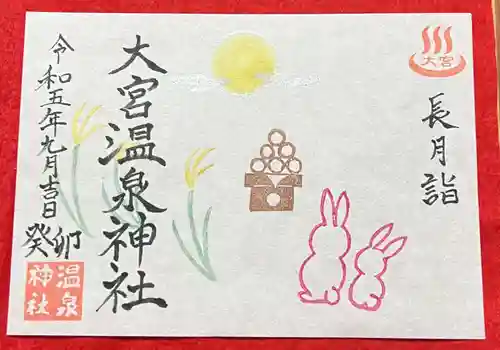 大宮
長月詣
大宮温泉神社
令和五年九月吉日
癸卯
温泉
神社